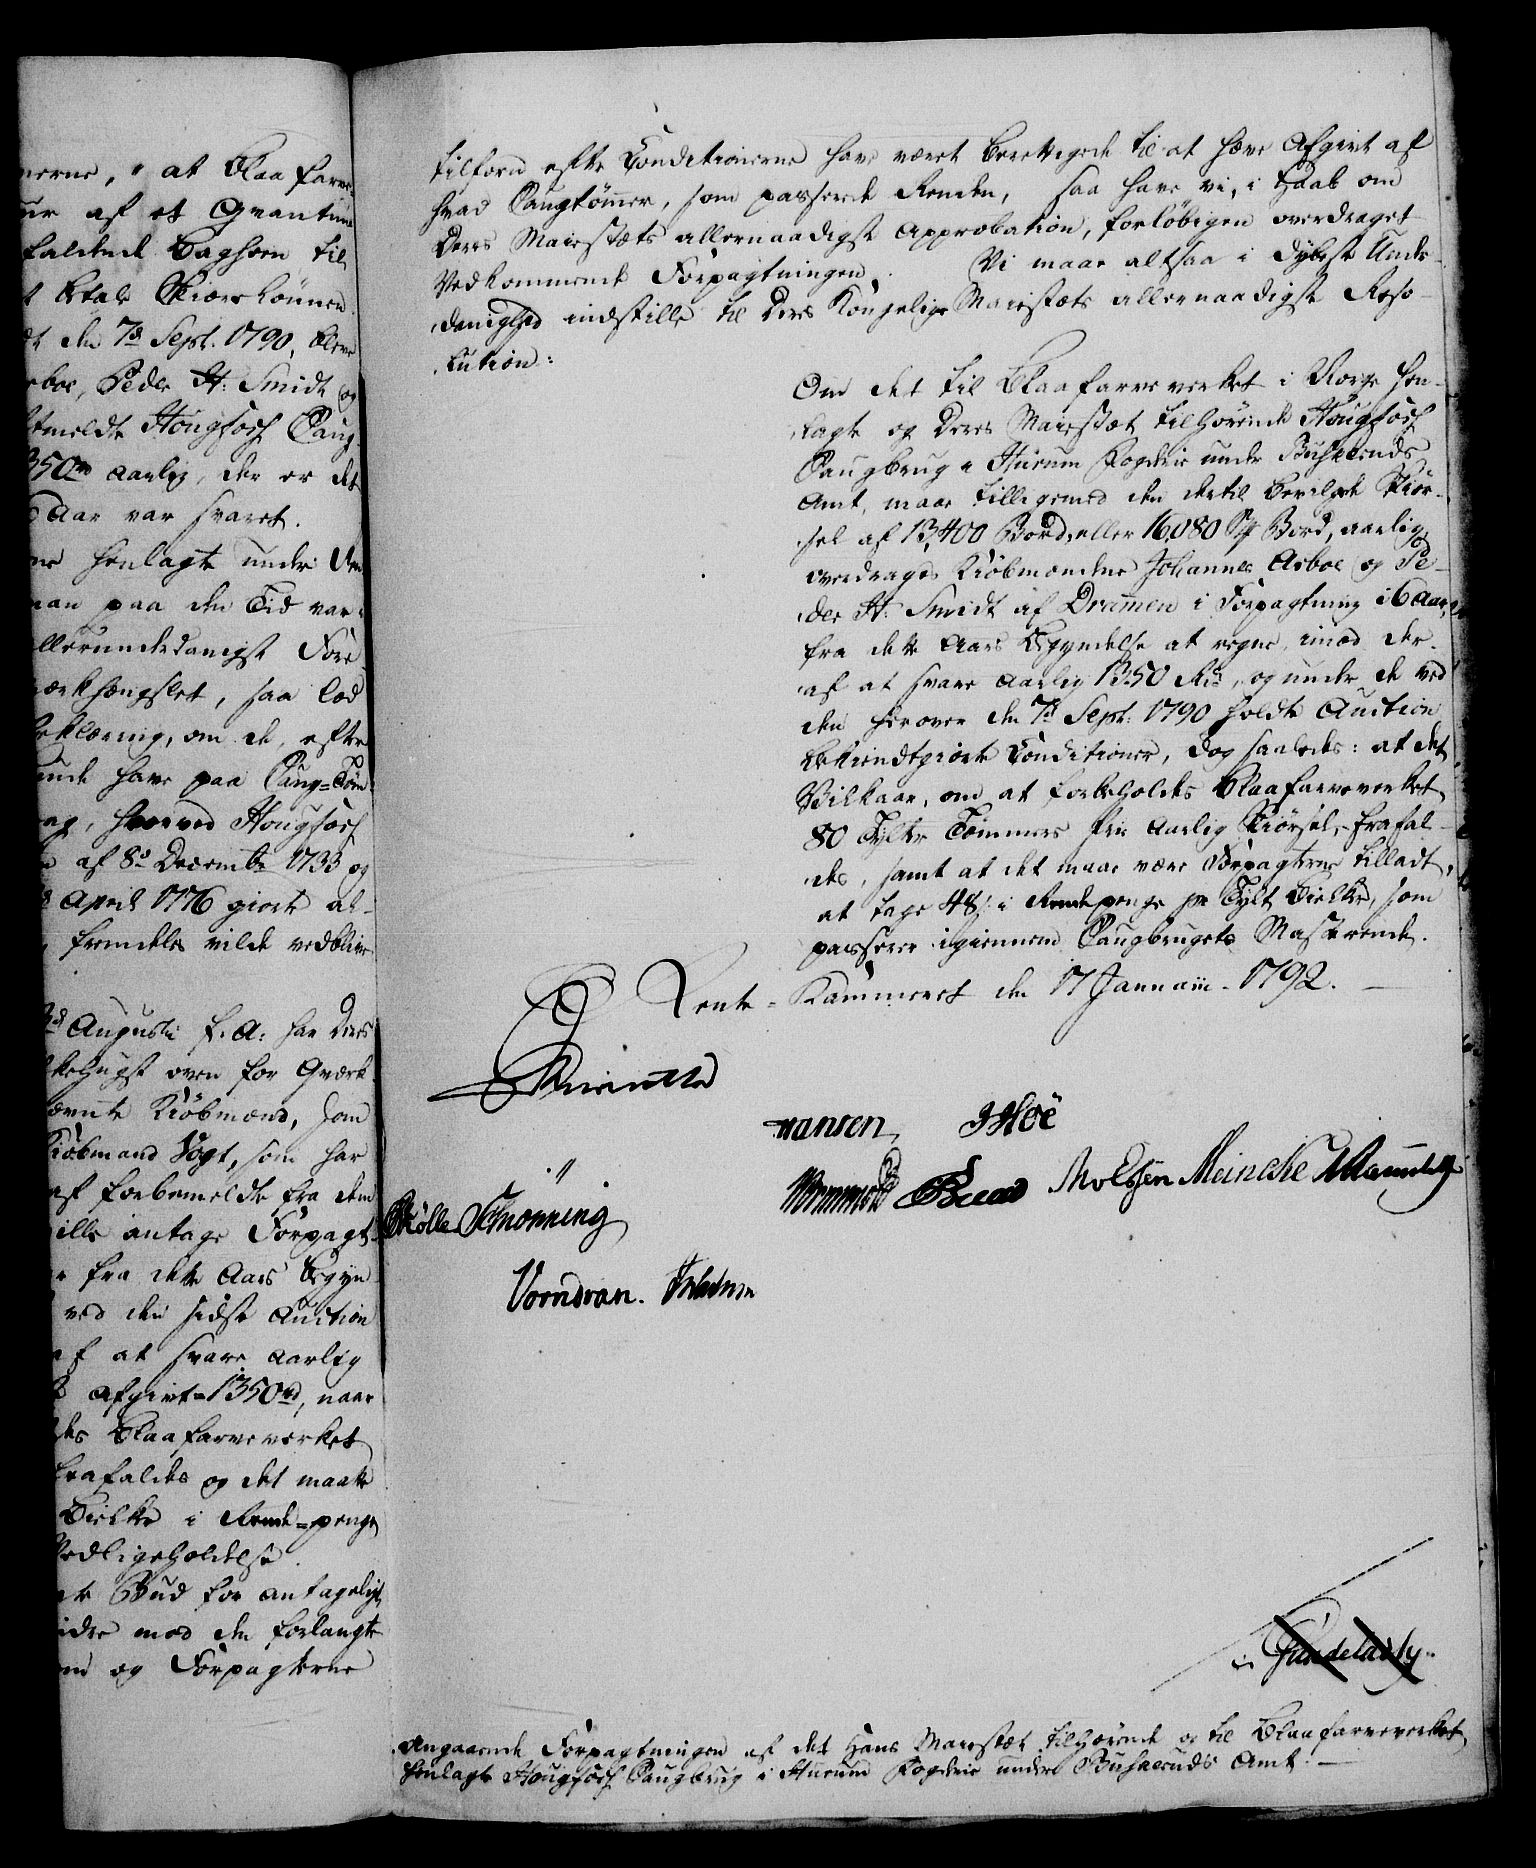 nerne, " at Blaafarve
ur af et Qvantum
faldende Baghoen til
t betale Kiørelønnen
dt den 7de Sept. 1790, bleve
rboe, Peder H: Smidt og
ltmeldte Hougfoss Saug
350rd aarlig, der er det
6 Aar var svaret.
ne henlagte under
man paa den Tid var
allerunderdanigst Fore
værkhængslet, saa lod
Erklæring, om de, efter
unde have paa Saug=Tøm
ag, hvorved Hougfoss
n af 8de December 1733 og
d April 1776 giorte al-
, fremdeles vilde vedblive
3d Augusti f. A: har Deres
ævnte Kiøbmænd, som
Kiøbmand Vogt, som har
af forbemeldte fra dem
ville antage Forpagt-
e fra dette Aars Begyn
ved den sidste Auction
af at svare aarlig
Afgivt=1350rd, naar
des Blaafarveverket
frafaldes og det maatte
Bielke i Rende=penge
Vedligeholdelse.
te Bud for antageligt
idre mod den forlangte
om og Forpagterne
tilforn efter Conditionerne have været berettigede til at hæve Afgivt af
hvad Saugtømmer, som passerede Renden, saa have vi, i Haab om
Deres Maiestæts allernaadigste Approbation, forløbigen overdraget
Vedkommende Forpagtningen. Vi maae altsaa i dybeste Under-
danighed indstille til Deres Kongelige Maiestæts allernaadigste Reso-
lution:
Om det til Blaafarveverket i Norge hen-
lagte og Deres Maiestæt tilhørende Hougfoss
Saugbrug i Hurum Fogderie under Buskeruds
Amt, maae tilligemed den dertil bevilgede Skiør-
sel af 13,400 Bord, eller 16,080 Bord, aarlig
overdrages Kiøbmændene Johannes Arboe og Pe-
der H: Smidt af Dramen i Forpagtning i 6 Aar,
fra dette Aars Begyndelse at regne, imod der-
af at svare aarlig 1350 Rd, og under de ved
den herover den 7de Sept: 1790 holdte Auction
bekiendtgiorte Conditioner, dog saaledes: at det
Vilkaar, om at forbeholdes Blaafarveverket
80 Tylter Tømmers frie aarlig Skiørsel, frafal-
des, samt at det maae være Forpagterne tilladt,
at tage 48s i Rendepenge pr Tylt Bielker, som
passerer igiennem Saugbrugets Mast rende.
Rente-Kammeret den 17 Januarii 1792.
Hansen, JHoë
Schønning
Molssen Meincke
Vorndran.
Angaaende Forpagtningen af det Hans Maiestæt tilhørende og til Blaafarveverket
henlagte Hougfoss Saugbrug i Hurum Fogderie under Buskeruds Amt. —